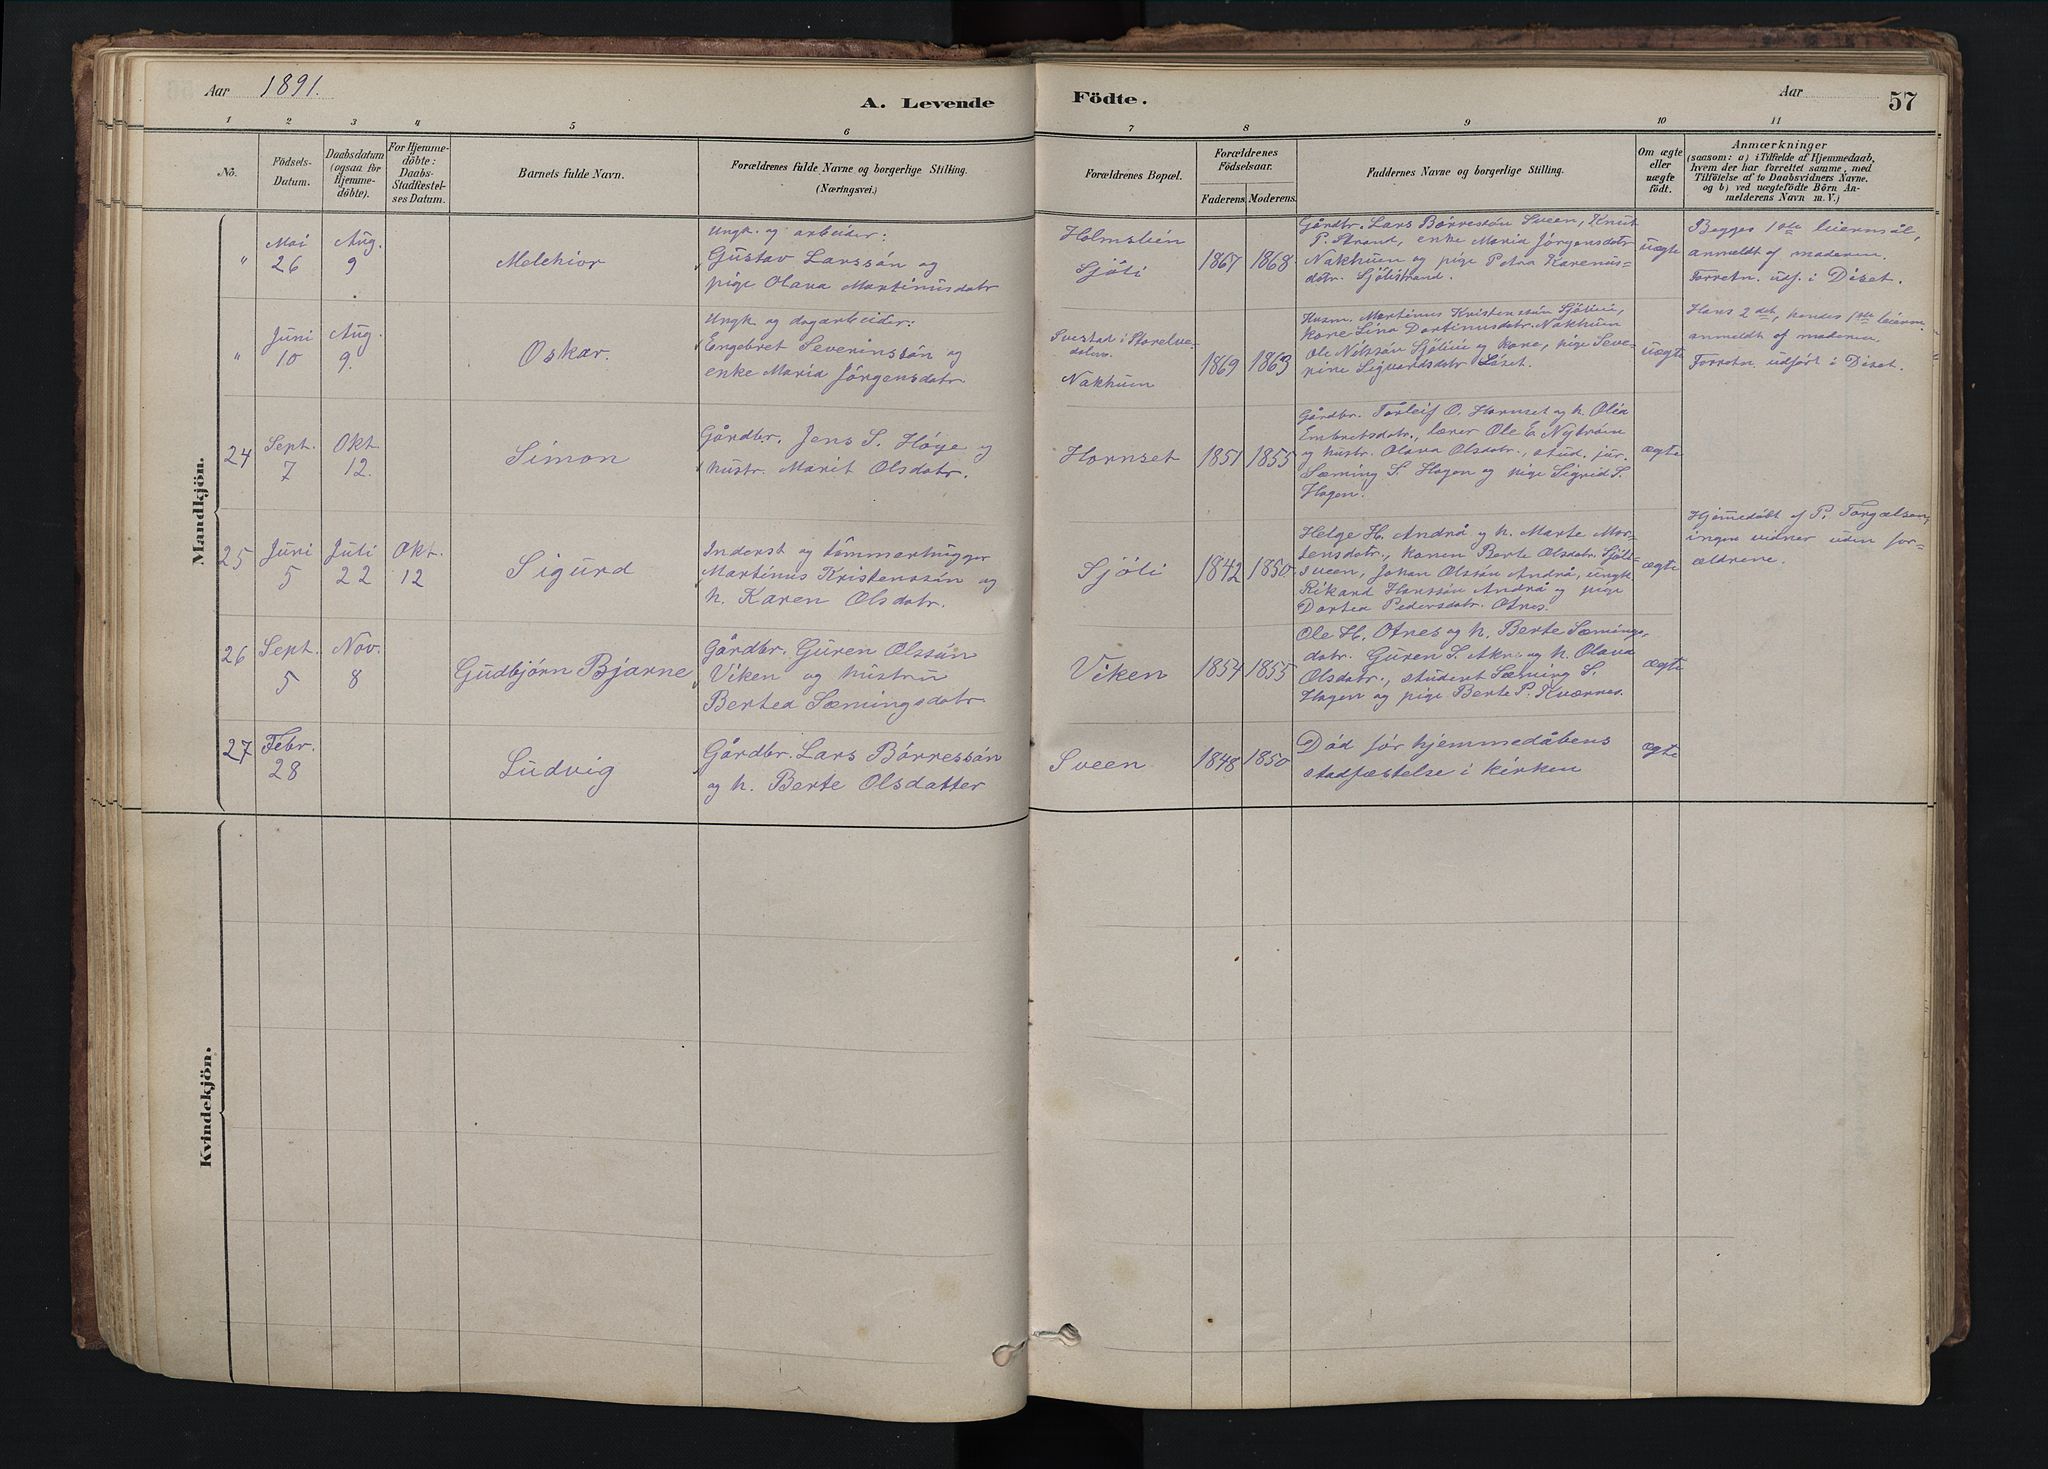 Aar 1891.
A. Levende Födte.
Aar
57
1 2 3 4 5 6 7 8 9 10 11
No.
Födsels-
Datum.
Daabsdatum
(ogsaa for
Hjemme-
döbte).
For Hjemme-
döbte:
Daabs-
Stadfæstel-
ses Datum.
Barnets fulde Navn.
Forældrenes fulde Navne og borgerlige Stilling.
(Næringsvei.)
Forældrenes Bopæl.
Forældrenes
Födselsaar.
Faderens. Moderens.
Faddernes Navne og borgerlige Stilling.
Om ægte
eller
uægte
födt.
Anmærkninger
(saasom: a) i Tilfælde af Hjemmedaab,
hvem der har forrettet samme, med
Tilföielse af to Daabsvidners Navne.
og b) ved uægtefödte Börn An-
melderens Navn m. V.)
Mandkjön.
" Mai
26
Aug.
9
Melchior
Ungk. og arbeider:
Gustav Larssøn og
pige Olava Martinusdatr
Holmslien
Sjöli
1867 1868
Gårdbr. Lars Børressøn Sveen, Knut
P. Strand, enke Maria Jörgensdatr
Nakhuen og pige Petra Karenus-
datr. Sjölistrand.
uægte
Begges 1ste leiermål,
anmeldt af moderen.
Forretn. udf. i Diset.
" Juni
10
Aug.
9.
Oskar.
Ungk. og dagarbeider:
Engebret Severinssøn og
enke Maria Jörgensdatr
i Storelve-
dalen.
Nakhuen
1869 1863
Husm. Martinus Kristenssøn Sjölien,
kone Lina Dortinusdatr. Nakhuen
Ole Nilssøn Sjölien og kone, pige Seve-
rine Sigvardsdatr Löset.
uægte
Hans 2det, hendes 1ste leierm.
anmeldt af moderen.
Forretn. udført i Diset.
24 Sept.
7
Okt
12.
Simon
Gårdbr. Jens S. Höye og
hustr. Marit Olsdatr.
Hornset
1851 1855
Gårdbr. Torleif O. Hornset og h. Olea
Embretsdatr., lærer Ole E. Nyström
og hustr. Olava Olsdatr., stud. jur.
Sæming S. Hagen og pige Sigrid S.
Hagen.
ægte
25 Juni
5
Juli
22
Okt.
12
Sigurd
Inderst og tømmerhugger
Martinus Kristenssøn og
h. Karen Olsdatr.
Sjöli
1842 1850
Helge H. Andrå og h. Marte Mor-
tensdatr., konen Berte Olsdatr. Sjöli-
sveen, Johan Olssøn Andrå, ungk.
Rikard Hanssøn Andrå og pige
Dortea Pedersdatr. Otnes.
ægte
Hjemmedöbt af P. Torgalsen,
ingen vidner uden for-
ældrene.
26 Sept.
5
Nov.
8
Gudbjørn Bjarne
Gårdbr. Guren Olssøn
Viken og hustru
Bertea Sæmingsdatr.
Viken
1854 1855
Ole H. Otnes og h. Berte Sæmings-
datr. Guren S. Akre og h. Olava
Olsdatr., student Sæming S.
Hagen og pige Berte P. Kværnes.
ægte
27 Febr.
28
Ludvig
Gårdbr. Lars Børressøn
og h. Berte Olsdatter
Sveen
1848 1850
Død før hjemmedåbens
stadfæstelse i kirken
ægte
Kvindekjön.